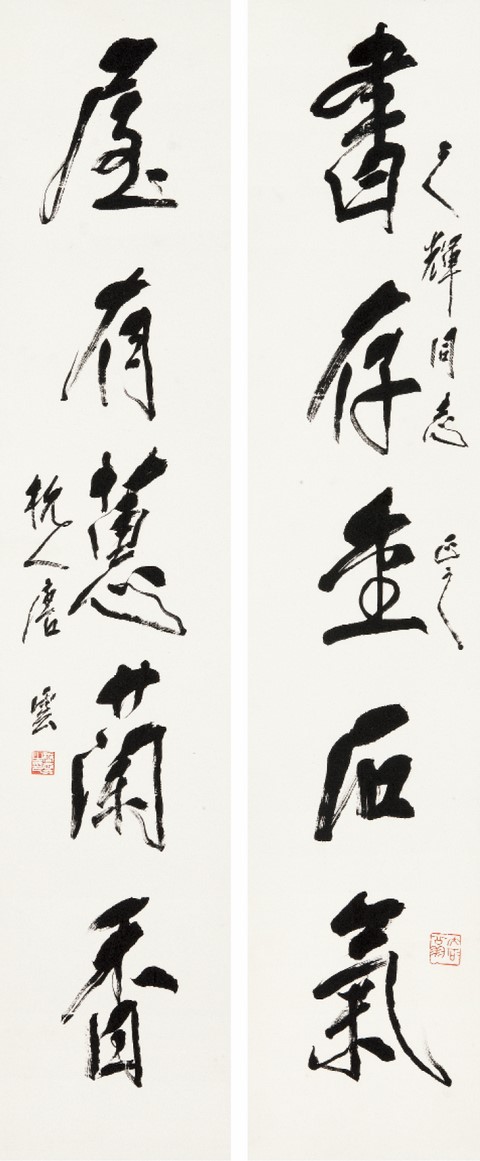 書存金石氣
之輝同志正之
屋有蕙蘭香
杭人唐雲